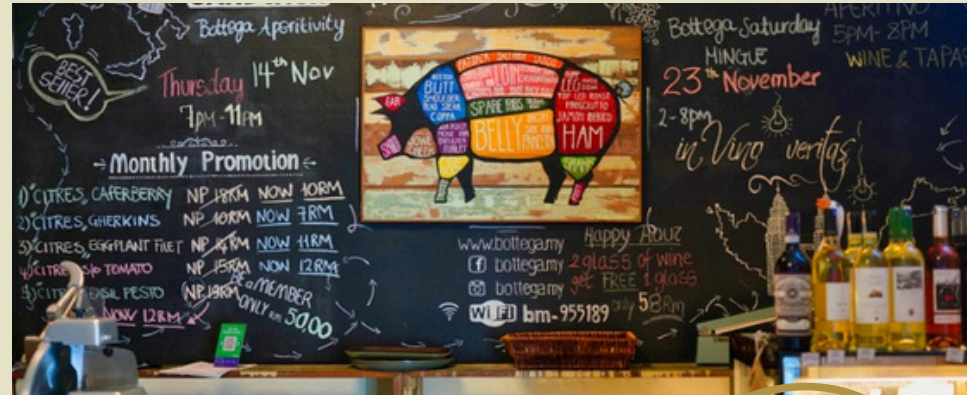 Bottega Aperitivity
BEST
SELLER!
Thursday 14th Nov
7PM-11PM
Monthly Promotion
1) CITRES, CAPERBERRY NP 18RM NOW 10RM
2) CITRES, GHERKINS NP 10RM NOW 7RM
3) CITRES, EGGPLANT FILET NP 14RM NOW 11RM
4) CITRES S/D TOMATO NP 15RM NOW 12RM
5) CITRES BASIL PESTO NP 19RM
NOW 12RM
Be a MEMBER
ONLY RM 50,00
EAR
BUTT
SHOULDER
COPPA
LOIN
SPARE RIBS
BELLY
LEG
PROSCIUTTO
JAMON IBERICO
HAM
JOWL
SHANK
www.bottega.my
bottegamy
bottegamy
WiFi bm-955189
Happy Hour
2 glass of wine
get FREE 1 glass
only 58RM
Bottega Saturday
MINGLE
23th November
2-8pm
in Vino veritas
APERITIVO
5PM-8PM
WINE & TAPAS